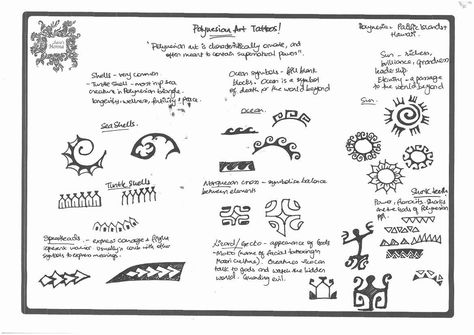 Polynesian Art Tattoos!
"Polynesian art is characteristically ornate, and
often meant to contain supernatural powers".
Polynesia - Pacific Islands +
Hawaii.
Henna
Shells - very common
- Turtle Shell - most imp sea
creature in Polynesian triangle.
longevity, wellness, fertility + peace.
Sea Shells.
Turtle Shells
Spearheads - express courage + fight
represent warrior. Usually used with other
symbols to express meanings.
Ocean symbols - fill blank
blocks. Ocean is a symbol
of death or the world beyond
Ocean.
Marquesan cross - symbolise balance
between elements
Lizard / Gecko - appearance of Gods
- Moko (name of facial tattooing in
Maori culture). Creatures who can
talk to gods and watch the hidden
world. Guarding evil.
Sun - richness,
brilliance, grandness
leadership
Eternity - a passage
to the world beyond
Sun.
Shark teeth
Power, ferocity. Sharks
are the Gods of Polynesian